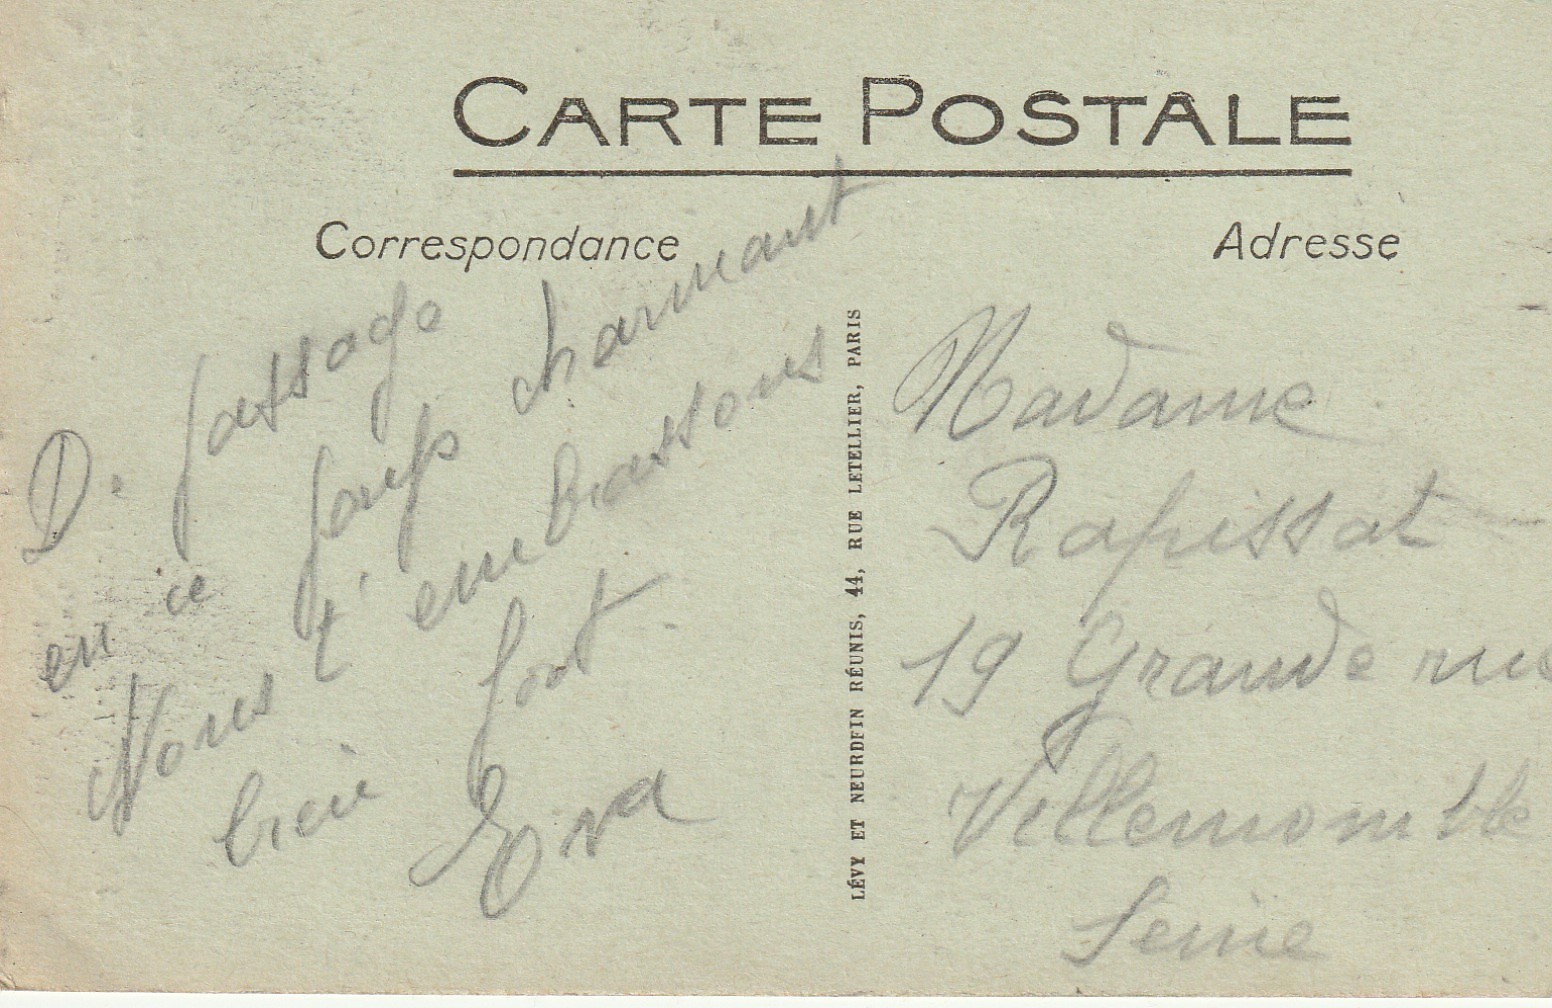 CARTE POSTALE
Correspondance
Adresse
De passage
en ce pays charmant
Nous t'embrassons
bien fort
Eva
LÉVY ET NEURDEIN RÉUNIS, 44, RUE LETELLIER, PARIS
Madame
Rapissat
19 Grande rue
Villemomble
Seine